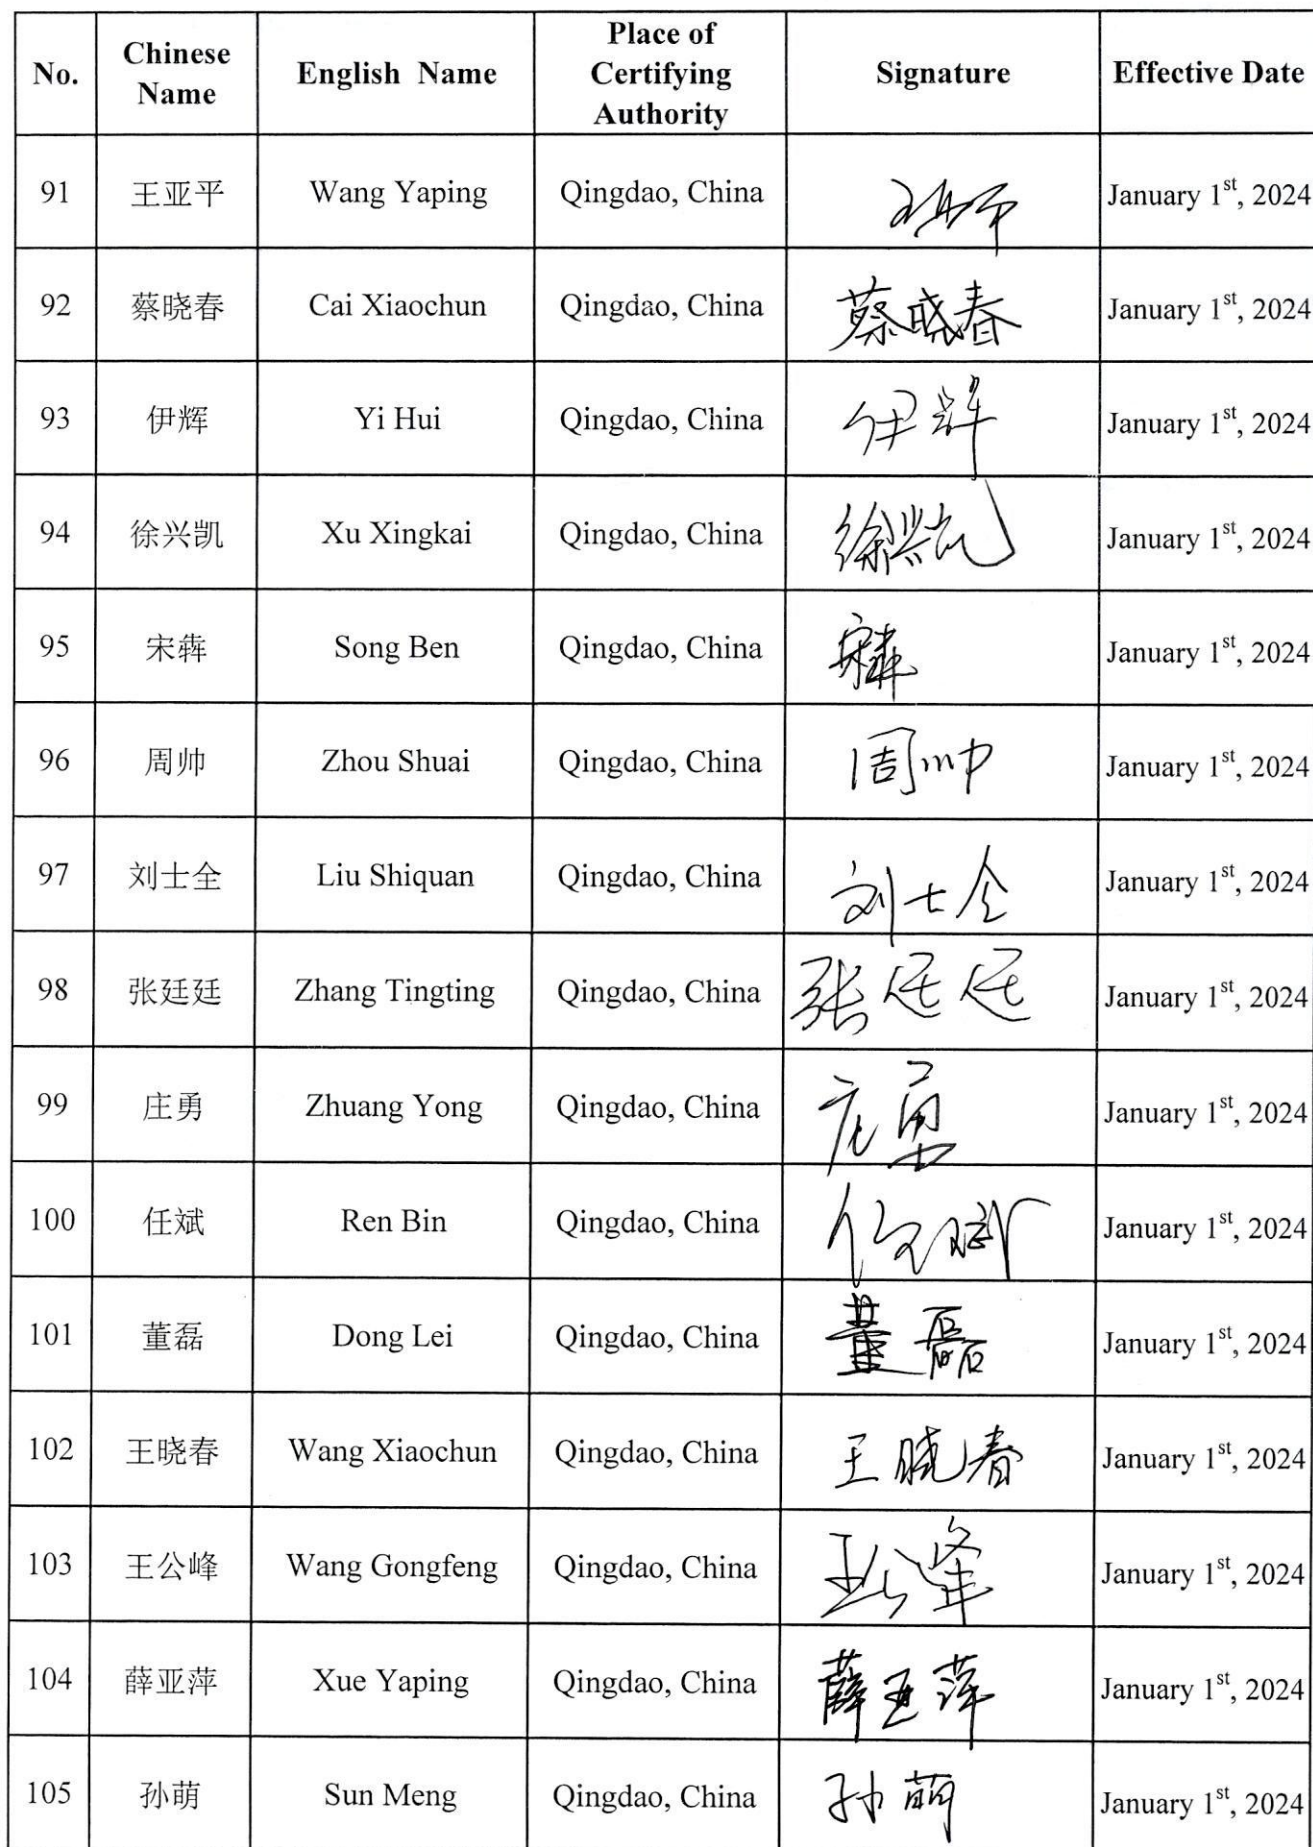 No. Chinese Name English Name Place of Certifying Authority Signature Effective Date
91 王亚平 Wang Yaping Qingdao, China January 1st, 2024
92 蔡晓春 Cai Xiaochun Qingdao, China 蔡晓春 January 1st, 2024
93 伊辉 Yi Hui Qingdao, China 伊辉 January 1st, 2024
94 徐兴凯 Xu Xingkai Qingdao, China 徐兴凯 January 1st, 2024
95 宋犇 Song Ben Qingdao, China 宋犇 January 1st, 2024
96 周帅 Zhou Shuai Qingdao, China 周帅 January 1st, 2024
97 刘士全 Liu Shiquan Qingdao, China 刘士全 January 1st, 2024
98 张廷廷 Zhang Tingting Qingdao, China 张廷廷 January 1st, 2024
99 庄勇 Zhuang Yong Qingdao, China 庄勇 January 1st, 2024
100 任斌 Ren Bin Qingdao, China 任斌 January 1st, 2024
101 董磊 Dong Lei Qingdao, China 董磊 January 1st, 2024
102 王晓春 Wang Xiaochun Qingdao, China 王晓春 January 1st, 2024
103 王公峰 Wang Gongfeng Qingdao, China 王公峰 January 1st, 2024
104 薛亚萍 Xue Yaping Qingdao, China 薛亚萍 January 1st, 2024
105 孙萌 Sun Meng Qingdao, China 孙萌 January 1st, 2024